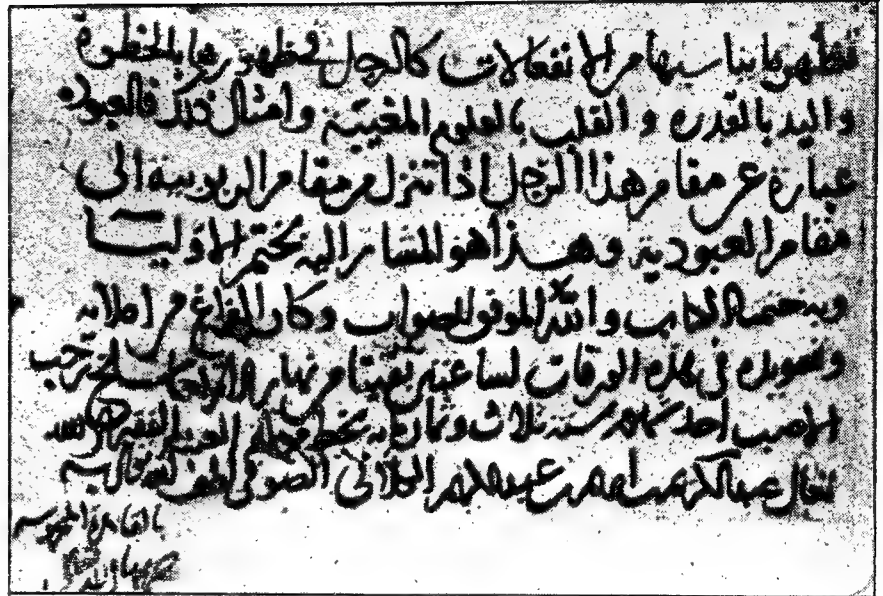 فظهر بما يناسبها من الانفعالات كالرجل في ظهوره بالخطوة
واليد بالقدرة والقلب بالعلوم المغيبة وامثال ذلك فالعبودة
عبارة عن مقام هذا الرجل اذا تنزل من مقام الربوبية الى
مقام العبودية وهذا هو المسامر اليه بختم الاوليا
وبه ختمنا الكتاب والله الموفق للصواب وكان الفراغ من املائه
وتسويده في هذه الورقات لساعتين بقيتا من نهار الاربعا سلخ رجب
الاصب احد شهور سنة ثلاث وثمانمايه بخط ممليه العبد الفقير الى الله
تعالى عبد الكريم بن ابراهيم بن عبد الكريم الكيلاني الصوفي لطف الله به
بالقاهرة المحروسة